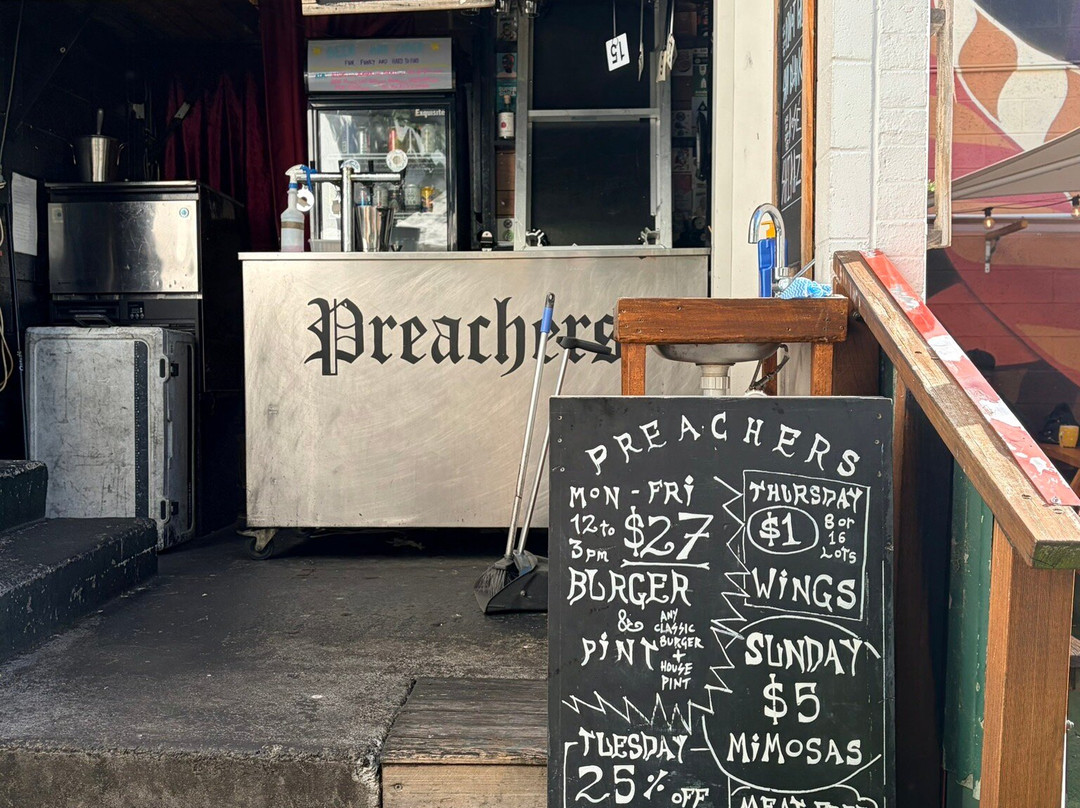 Exquisite
15
Preachers
PREACHERS
MON - FRi
12 to
3pm
$27
BURGER
&
PiNT
ANY
CLASSIC
BURGER
+
HOUSE
PiNT
THURSDAY
$1
8 or
16
Lots
WiNGS
SUNDAY
$5
MiMOSAS
TUESDAY
25% OFF